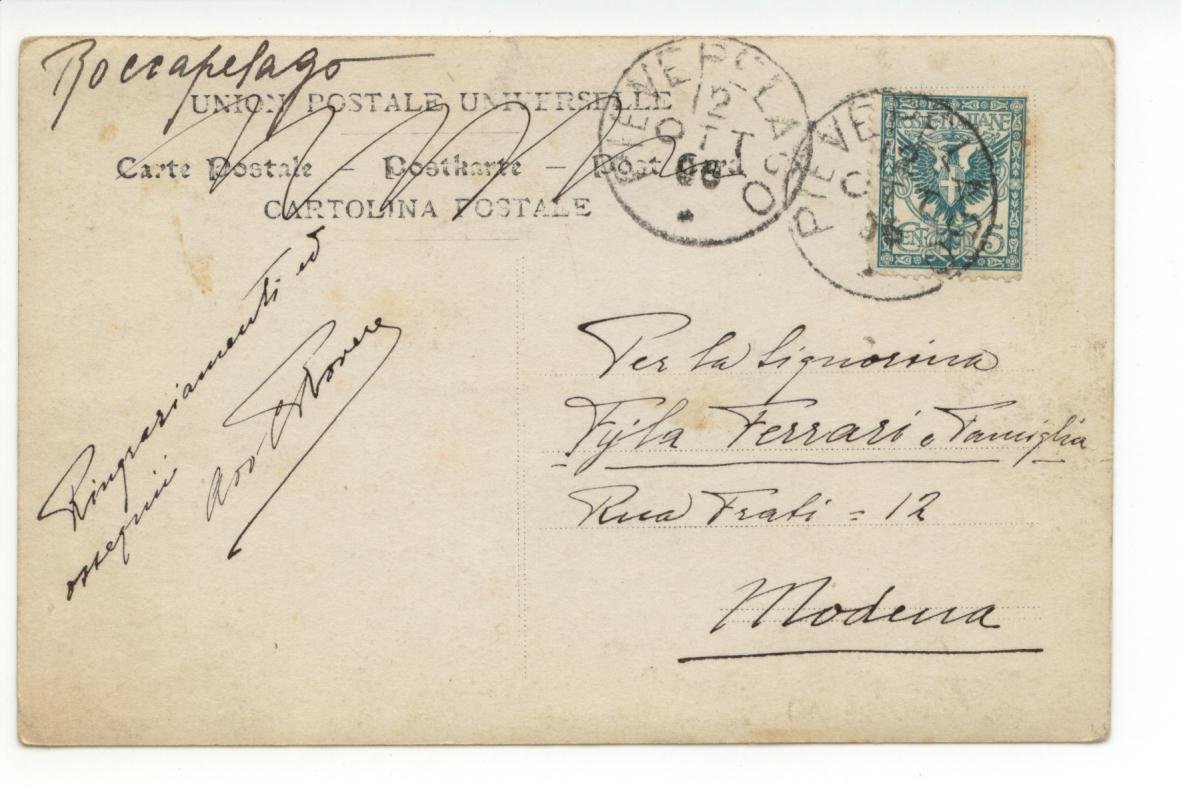 Roccapelago
UNION POSTALE UNIVERSELLE
Carte Postale – Postkarte – Post Card
CARTOLINA POSTALE
PIEVEPELAGO
12
OTT
06
PIEVEPELAGO
POSTE ITALIANE
CENT 5
Ringraziamenti ed
ossequii
Per la Signorina
Fyla Ferrari e Famiglia
Rua Frati = 12
Modena